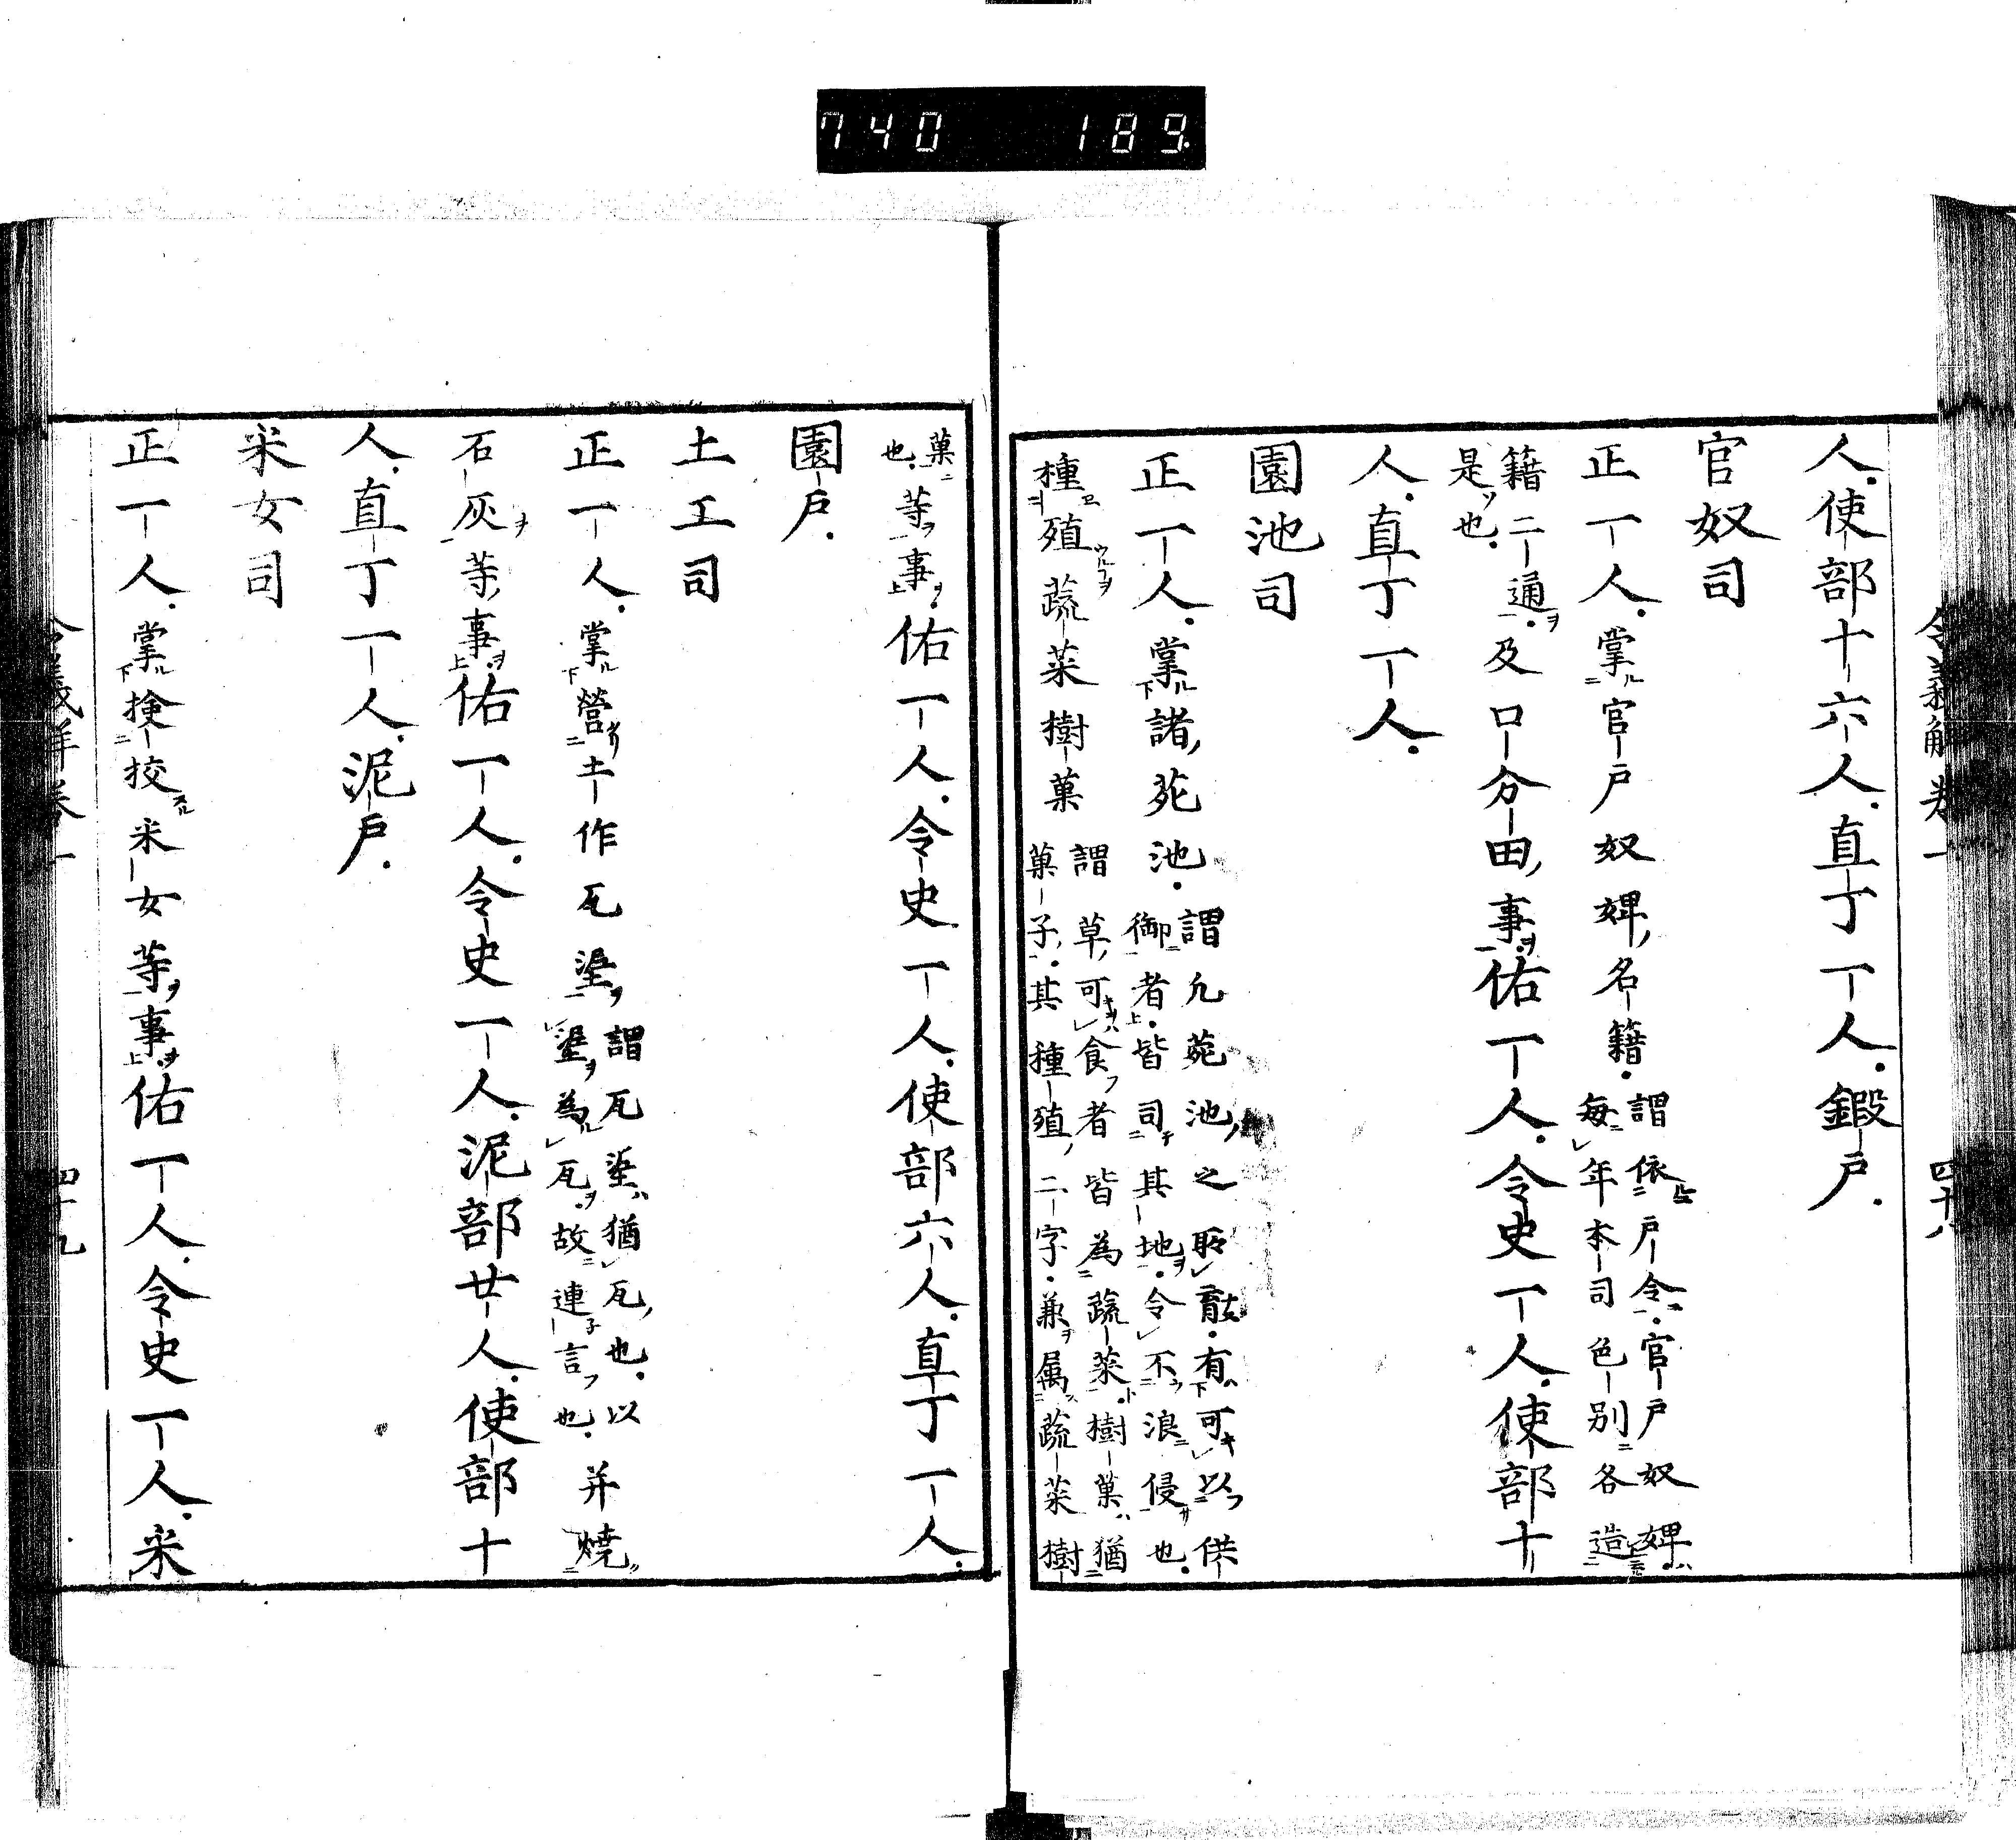 740 189
令義解卷一 四十八
人使部十六人直丁一人鍛戸
官奴司
正一人掌官戸奴婢名籍謂依戸令官戸奴婢
每年本司色別各造
籍二通及口分田事佑一人令史一人使部十
是也
人直丁一人
園池司
正一人掌諸苑池謂凡苑池之所有可以供
御者皆司其地令不浪侵也
種殖蔬菜樹菓謂草可食者皆為蔬菜樹菓猶
菓子其種殖二字兼属蔬菜樹
菓等事佑一人令史一人使部六人直丁一人
也
園戸
土工司
正一人掌營土作瓦㙛謂瓦㙛猶瓦也以
㙛為瓦故連言也并燒
石灰等事佑一人令史一人泥部廿人使部十
人直丁一人泥戸
采女司
正一人掌検校采女等事佑一人令史一人采
四十九